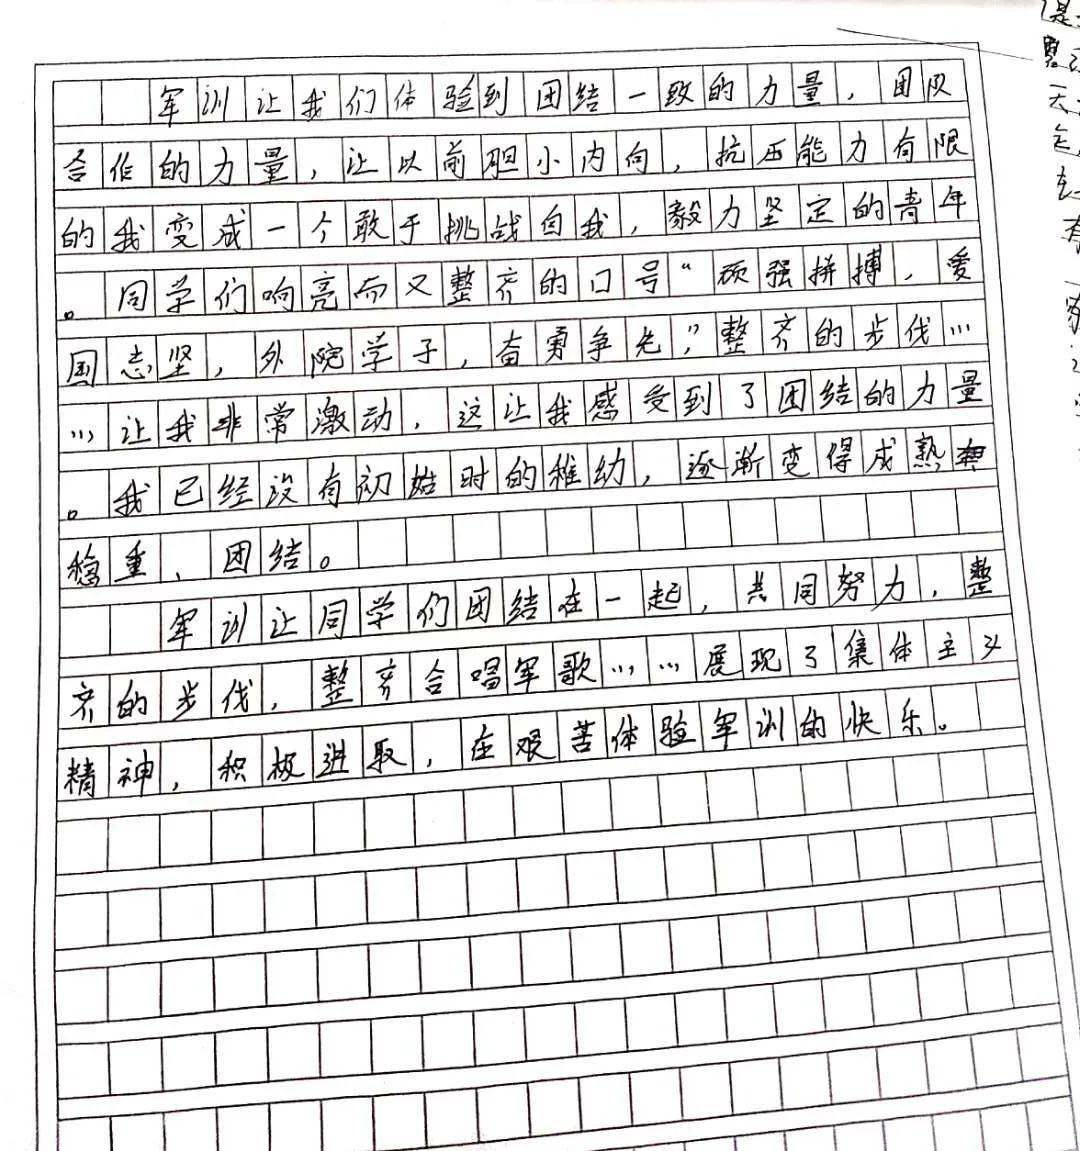 军训让我们体验到团结一致的力量，团队
合作的力量，让以前胆小内向，抗压能力有限
的我变成一个敢于挑战自我，毅力坚定的青年
。同学们响亮而又整齐的口号“顽强拼搏，爱
国志坚，外院学子，奋勇争先，”整齐的步伐…
…让我非常激动，这让我感受到了团结的力量
。我已经没有初始时的稚幼，逐渐变得成熟
稳重、团结。
军训让同学们团结在一起，共同努力，整
齐的步伐，整齐合唱军歌……展现了集体主义
精神，积极进取，在艰苦体验军训的快乐。